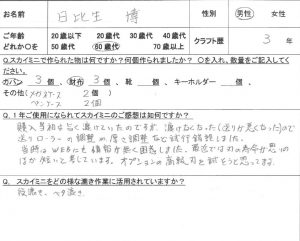 お名前 日比生 博 性別 男性 女性
ご年齢 20歳以下 20歳代 30歳代 40歳代
どれか〇を 50歳代 60歳代 クラフト歴 3年
Q.スカイミニで作られた物は何ですか？何個作られましたか？ 〇を入れ、数量をご記入してください。
カバン 3個、財布 3個、靴 個、キーホルダー 個、
その他(メガネケース 2個)
ペンケース 2個
Q. 1年ご使用になられてスカイミニのご感想は如何ですか？
購入当初は良く漉けていたのですが、漉けなくなった(送りが悪くなった)ので
送りローラーの調整や厚さ調整など試行錯誤しました。
当時はWEBにも情報が無く困惑しました。最近では刃の寿命が思いの
ほか短いと感じています。オプションの高級刃を試そうと思ってます。
Q. スカイミニをどの様な漉き作業に活用されていますか？
段漉き、ベタ漉き